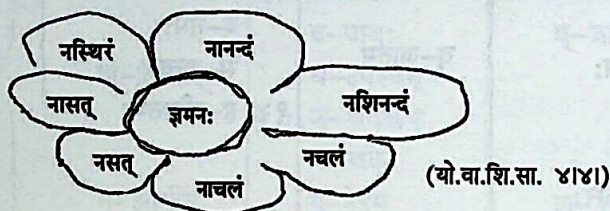 नस्थिरं
नानन्दं
नासत्
ज्ञमनः
नशिनन्दं
नसत्
नचलं
नाचलं
(यो.वा.शि.सा. ४।४।)